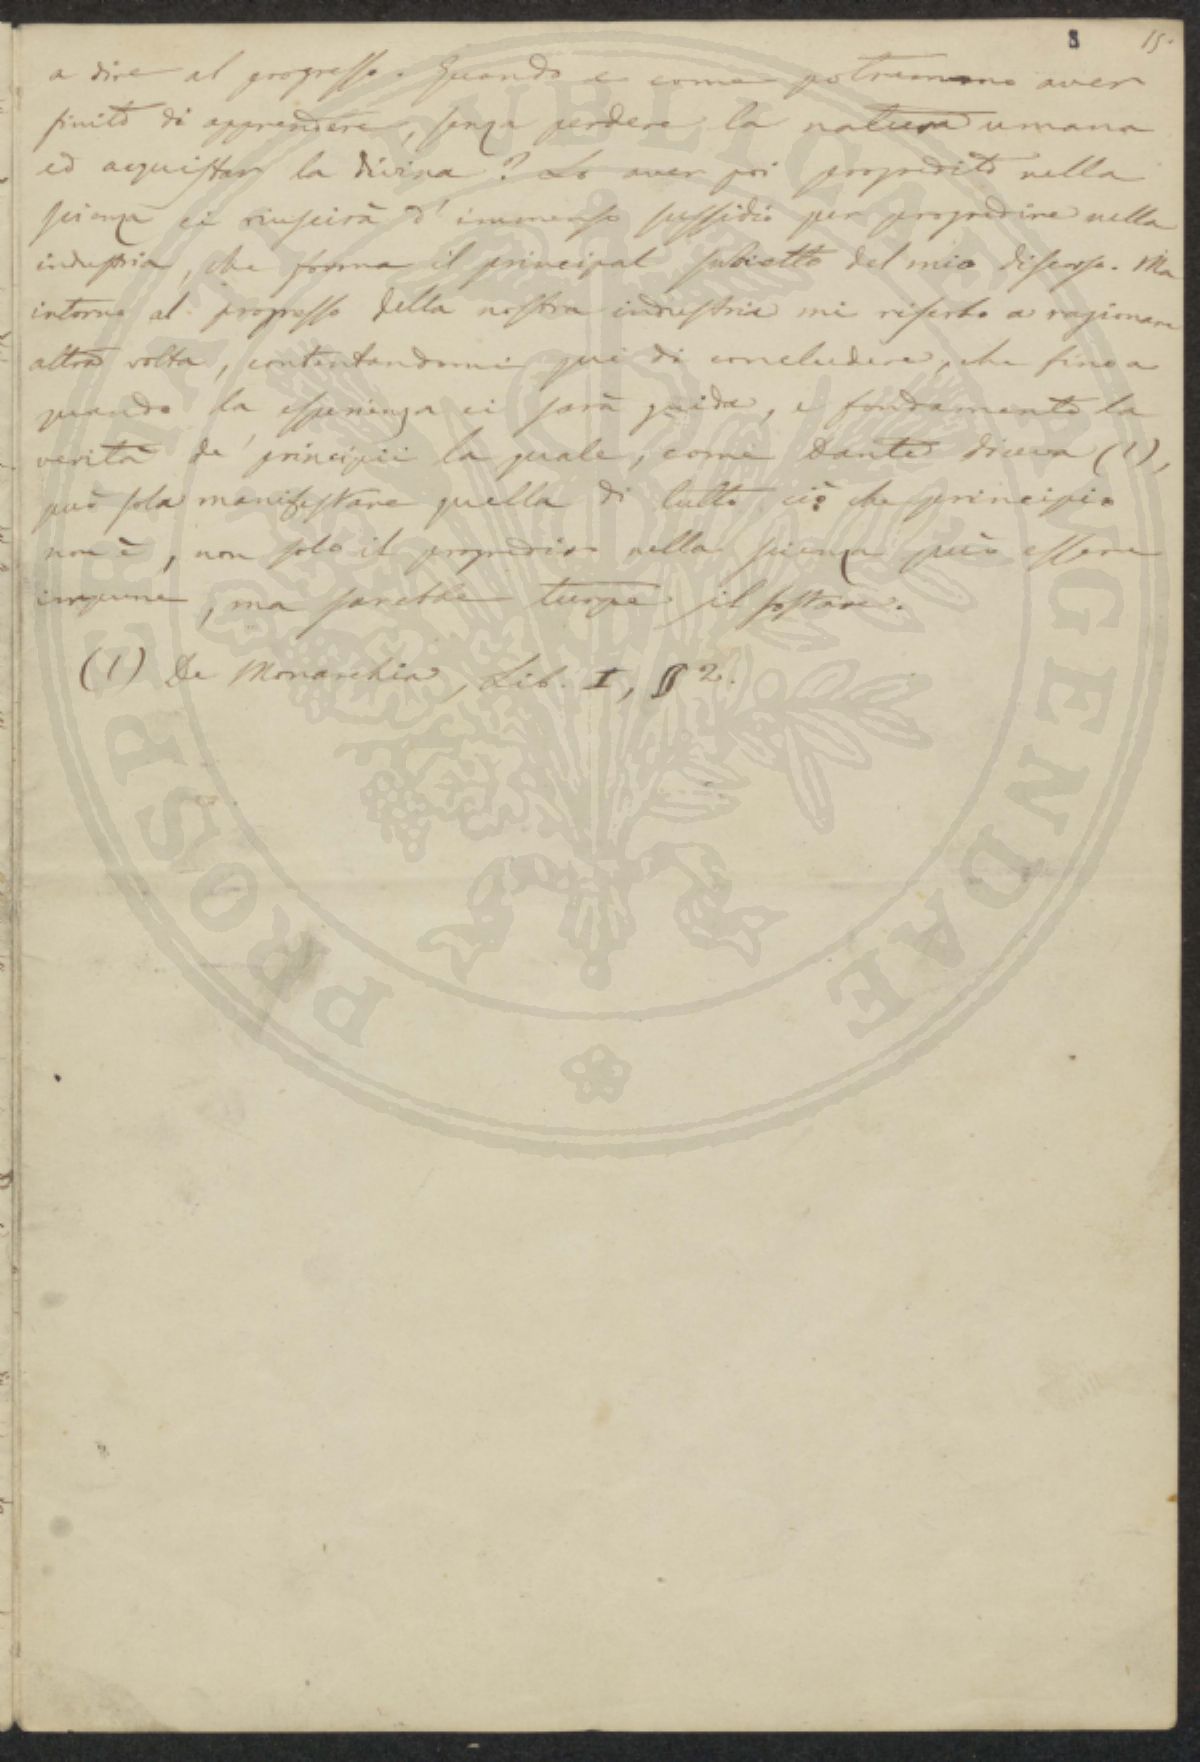 8 15.
a dire al progresso. Quando e come potremmo aver
finito di apprendere, senza perdere la natura umana
ed acquistar la divina? Lo aver poi progredito nella
scienza ci riuscirà d'immenso sussidio per progredire nella
industria, che forma il principal subietto del mio discorso. Ma
intorno al progresso della nostra industria mi riserbo a ragionare
altra volta, contentandomi qui di concludere, che fino a
quando la esperienza ci sarà guida, e fondamento la
verità de' principii la quale, come Dante diceva (1),
può sola manifestare quella di tutto ciò che principio
non è, non solo il progredire nella scienza può essere
impune, ma sarebbe turpe il sostare.
(1) De Monarchia, Lib. I, § 2.
PROSPERITATI PUBLICAE AUGENDAE